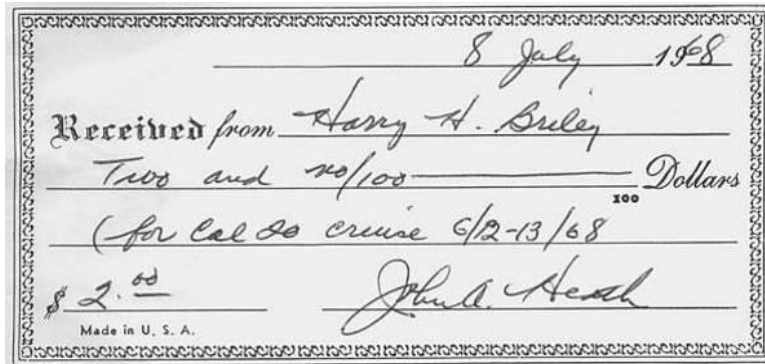 8 July 1968
Received from Harry H. Briley
Two and no/100 Dollars
100
(for Cal 20 cruise 6/12-13/68
$ 2.00 John A. Heath
Made in U. S. A.